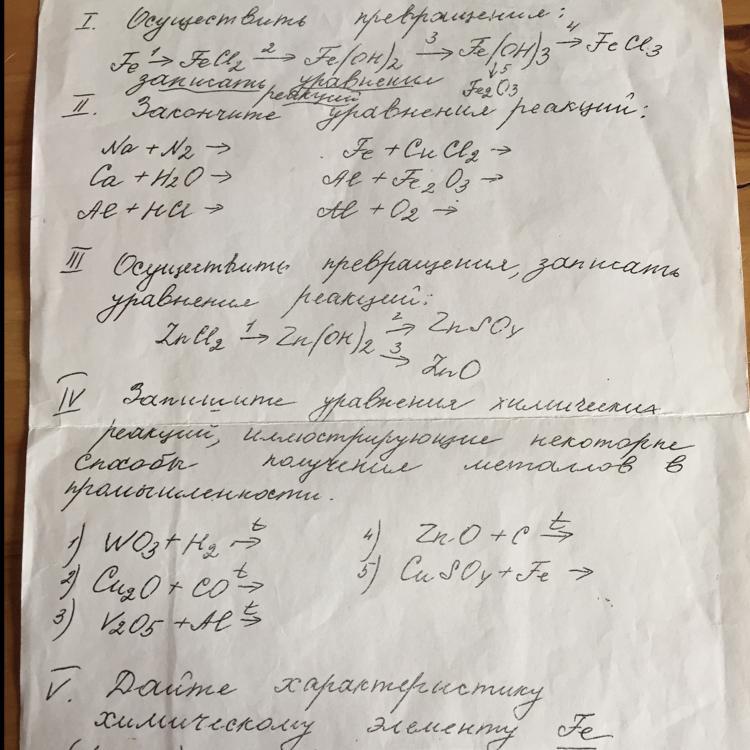 I. Осуществить превращения:
Fe ¹→ FeCl₂ ²→ Fe(OH)₂ ³→ Fe(OH)₃ ⁴→ FeCl₃
↓5
записать уравнения Fe₂O₃
реакций
II. Закончите уравнения реакций:
Na + N₂ → Fe + CuCl₂ →
Ca + H₂O → Al + Fe₂O₃ →
Al + HCl → Al + O₂ →
III Осуществить превращения, записать
уравнения реакций:
ZnCl₂ ¹→ Zn(OH)₂ ²→ ZnSO₄
³→ ZnO
IV Запишите уравнения химических
реакций, иллюстрирующие некоторые
способы получения металлов в
промышленности.
1) WO₃ + H₂ t→ 4) ZnO + C t→
2) Cu₂O + CO t→ 5) CuSO₄ + Fe →
3) V₂O₅ + Al t→
V. Дайте характеристику
химическому элементу Fe